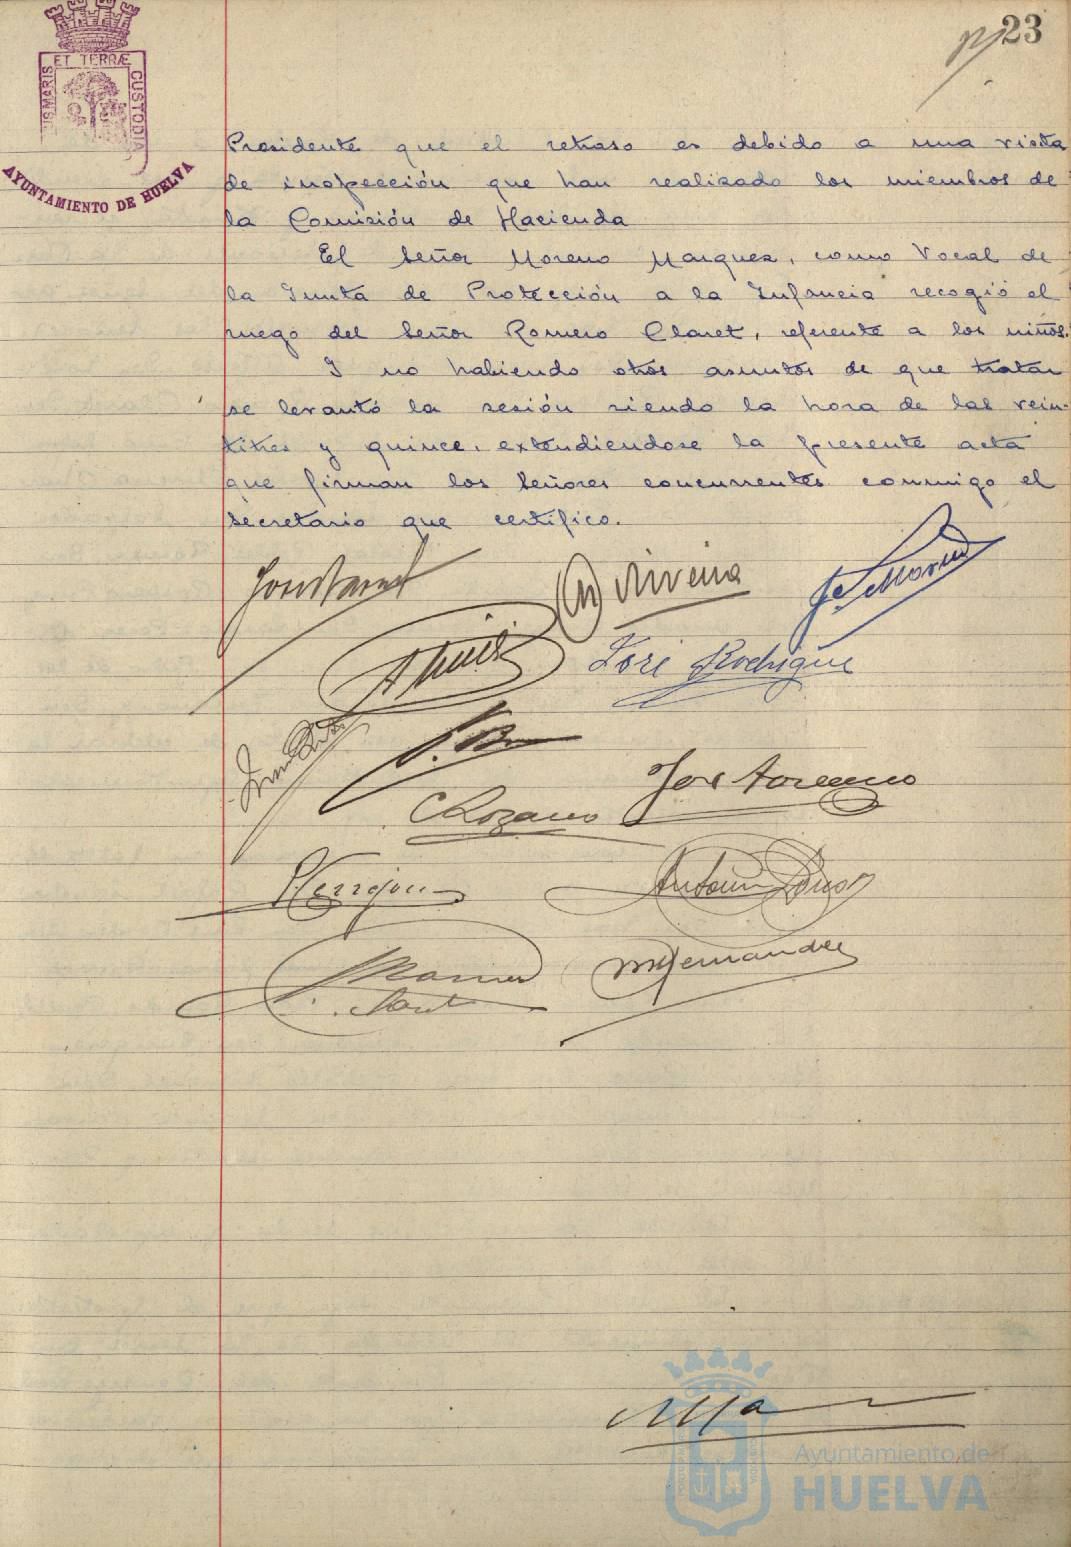 23
ET TERRÆ
CUSTODIA
AYUNTAMIENTO DE HUELVA
Presidente que el retraso es debido a una visita
de inspección que han realizado los miembros de
la Comisión de Hacienda
El Señor Moreno Marquez, como Vocal de
la Junta de Protección a la Infancia recogió el
ruego del Señor Romero Claret, referente a los niños.
I no habiendo otros asuntos de que tratar
se levantó la sesión siendo la hora de las vein-
titres y quince, extendiendose la presente acta
que firman los Señores concurrentes conmigo el
secretario que certifico.
José Rodrigue
C Lozano
P Cerrejon
M Hernandez
Ayuntamiento de
HUELVA